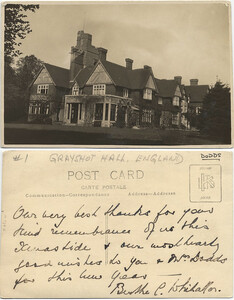 DODDS
#1 GRAYSHOT HALL, ENGLAND
DODDS
POST CARD
CARTE POSTALE
Communication—Correspondance
Address—Adresse
Our very best thanks for your
kind remembrance of us this
Xmastide & our most hearty
good wishes to you & Mr Dodds
for this New Year
Bertha C. Whitaker.